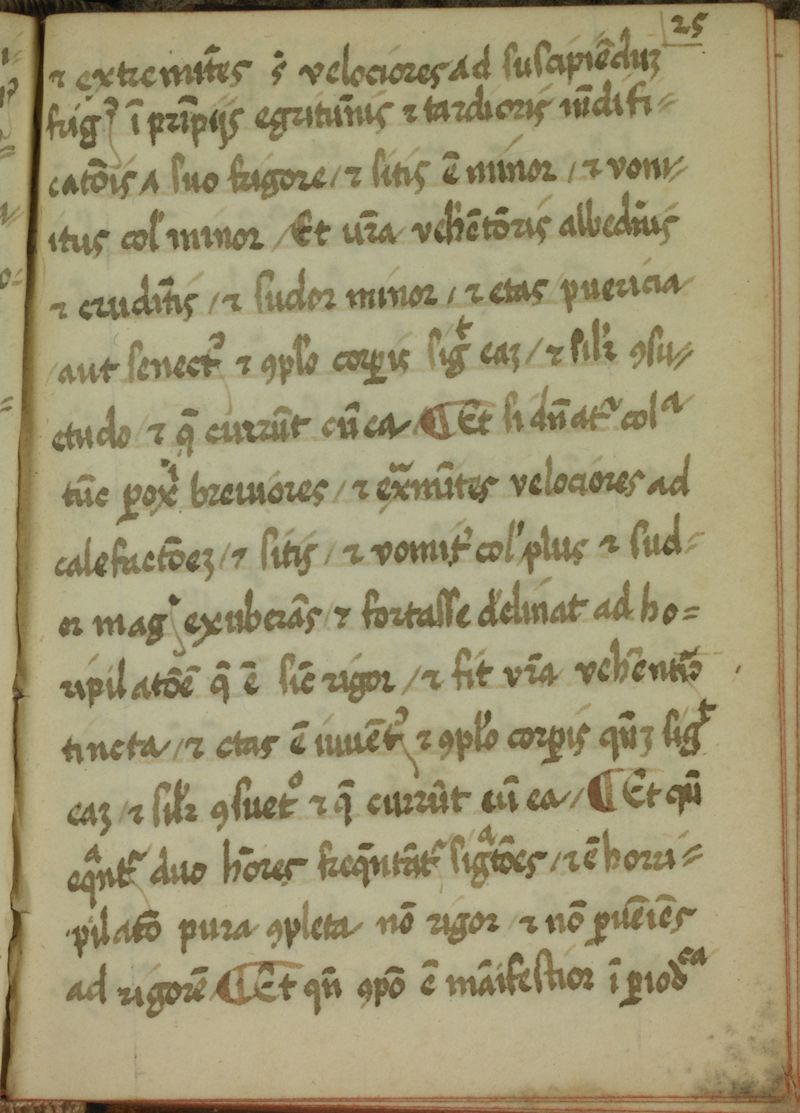 25
⁊ extremit̃es s̃ velociores ad suscipiẽduꝫ
frigꝰ ĩ prĩpijs egritũnis ⁊ tardioris mũdifi=
catõis a suo frigore / ⁊ sitis ẽ minor / ⁊ vom=
itus col̕ minor / Et ur̃a veh̕ẽtõris albedĩs
⁊ crudit̃is / ⁊ sudor minor / ⁊ etas puericia
aut senectꝰ ⁊ ꝯpl̕o corꝑis sig̃t eaꝫ / ⁊ sil̕r ꝯsu=
etudo ⁊ q̃ currũt cũ ea ¶ Et si dñatʳ colᵃ
tũc ꝑox̕ⁱ breuiores / ⁊ ex̃mit̃es velociores ad
calefactõeꝫ / ⁊ sitis / ⁊ vomitꝰ col̕ plus ⁊ sud=
or magꝭ exuberãs / ⁊ fortasse d̕clinat ad ho=
ripilatõẽ q̃ ẽ sic̃ rigor / ⁊ fit vr̃a veh̕ẽntiõ
tincta / ⁊ etas ẽ iuuẽtꝰ ⁊ ꝯpl̕o corꝑis qñꝫ sig̃t
eaꝫ / ⁊ sil̕r ꝯsuetᵒ ⁊ q̃ currũt cũ ea / ¶ Et qñ
eqᵃñtʳ duo hõres freq̃ntãtʳ sigᵃtões / ⁊ ẽ horri=
pilatõ pura ꝯpleta nõ rigor ⁊ nõ ꝑuẽiẽs
ad rigorẽ ¶ Et qñ ꝯpõ ẽ mãifestior ĩ ꝑiodᵉᵃ